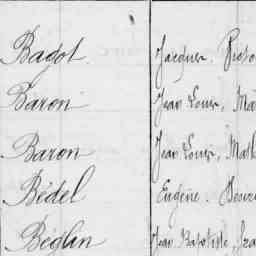 Bagot. Jacques.
Baron Jean Louis,
Baron Jean Louis,
Bédel Eugène.
Béglin Jean Baptiste,